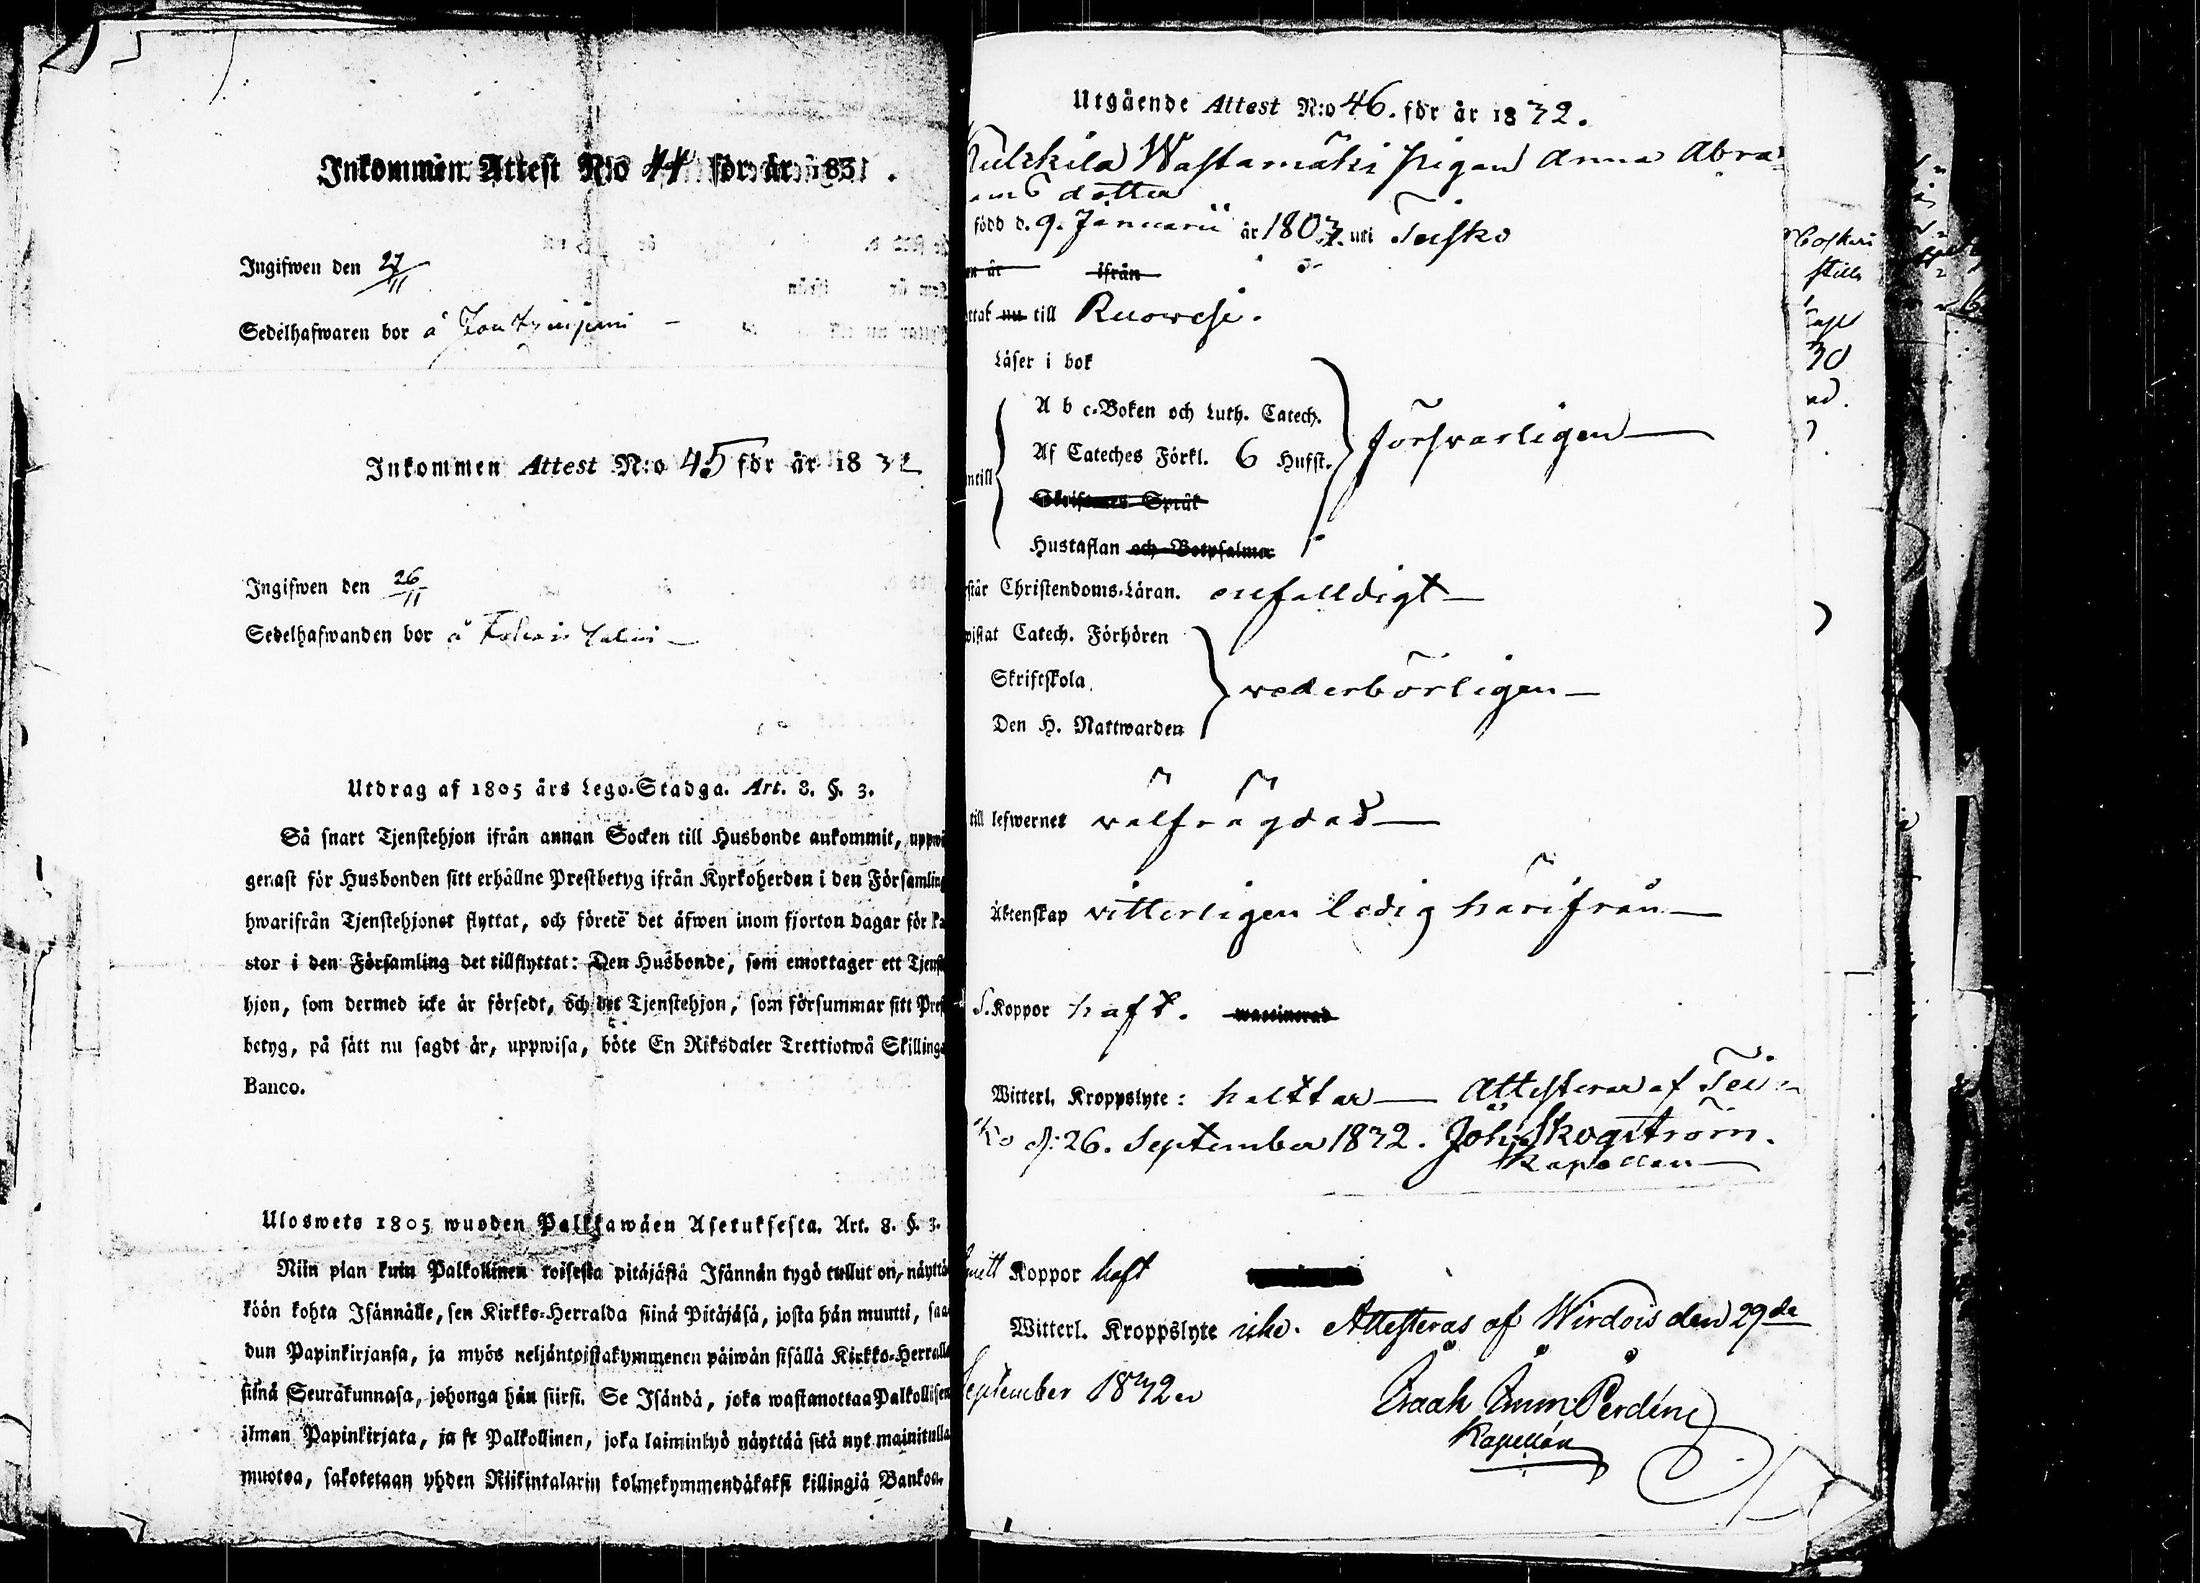 Inkommen Attest N:o 44 för år 1831.
Ingifwen den 27/11
Sedelhafwaren bor å
Inkommen Attest N:o 45 för år 1832
Ingifwen den 26/11
Sedelhafwanden bor å
Utdrag af 1805 års Lego-Stadga. Art. 8. §. 3.
Så snart Tjenstehjon ifrån annan Socken till Husbonde ankommit, uppwi
genast för Husbonden sitt erhållne Prestbetyg ifrån Kyrkoherden i den Församling
hwarifrån Tjenstehjonet flyttat, och företé det äfwen inom fjorton dagar för Pa
stor i den Församling det tillflyttat: Den Husbonde, som emottager ett Tjenst
hjon, som dermed icke är försedt, och det Tjenstehjon, som försummar sitt Prest
betyg, på sätt nu sagdt är, uppwisa, böte En Riksdaler Trettiotwå Skillinge
Banco.
Uloswets 1805 wuoden Palkkawäen Asetuksesta. Art. 8. §. 3.
Niin pian kuin Palkollinen toisesta pitäjästä Isännän tygö tullut on, näyttä
köön kohta Isännälle, sen Kirkko-Herralda siinä Pitäjäsä, josta hän muutti, saa
dun Papinkirjansa, ja myös neljäntoistakymmenen päiwän sisällä Kirkko-Herralle
siinä Seurakunnasa, johonga hän siirsi. Se Isändä, joka wastanottaa Palkollisen
ilman Papinkirjata, ja se Palkollinen, joka laiminlyö näyttää sitä nyt mainitulla
muotoa, sakotetaan yhden Riikintalarin kolmekymmendäkaksi killingiä Bankoa.
Utgående Attest N:o 46. för år 1832.
Wastamäki pigan Anna Abra
ams dotter
född d. 9. Januarii år 1803. uti Teisko
en år ifrån
ttat nu till Ruowesi.
Läser i bok
A b c-Boken och Luth. Catech.
Af Cateches Förkl. 6 Hufst.
försvarligen
ntill
Skriftenes Språk
Hustaflan och Botpsalmer
står Christendoms-Läran. enfalldigt
wistat Catech. Förhören
Skriftskola
wederbörligen
Den H. Nattwarden
till lefwernet välfrägdad
Äktenskap vitterligen ledig härifrån
S. Koppor haft. waccinerad
Witterl. Kroppslyte: halttar Attesterar af Teis
ko d: 26. September 1832. Joh. Skogström.
Kapellan
Koppor haft
Witterl. Kroppslyte icke. Attesteras af Wirdois den 29de
September 1832
Isaak Perdén
Kapellan